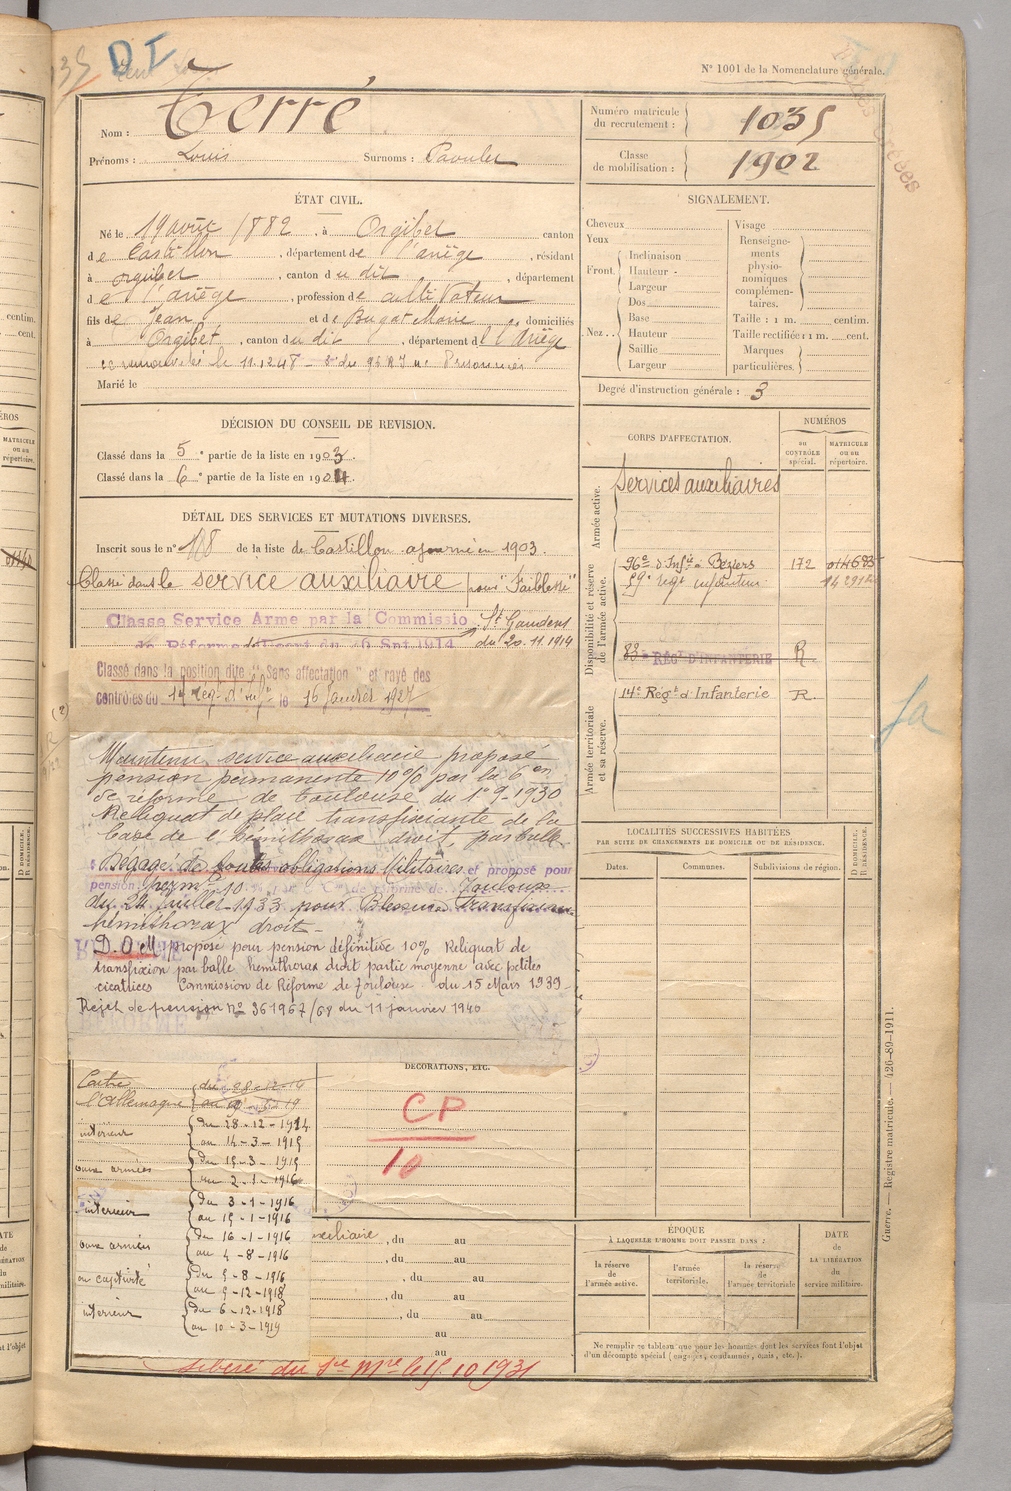 N° 1001 de la Nomenclature générale.
Nom : Terré
Prénoms : Louis Surnoms : Paoulet
Numéro matricule du recrutement : 1035
Classe de mobilisation : 1902
ÉTAT CIVIL.
Né le 19 août 1882, à Orgibet canton
de Castillon, département de l'ariège, résidant
à orgibet, canton du dit, département
de l'ariège, profession de cultivateur
fils de Jean et de Bugat Marie domiciliés
à Orgibet, canton du dit, département de l'Ariège
Marié le
SIGNALEMENT.
Cheveux
Yeux
Front. Inclinaison
Hauteur
Largeur
Nez.. Dos
Base
Hauteur
Saillie
Largeur
Visage
Renseignements physionomiques complémentaires.
Taille : 1 m. centim.
Taille rectifiée : 1 m. cent.
Marques particulières.
Degré d'instruction générale : 3
DÉCISION DU CONSEIL DE REVISION.
Classé dans la 5e partie de la liste en 1903.
Classé dans la 6e partie de la liste en 1904.
DÉTAIL DES SERVICES ET MUTATIONS DIVERSES.
Inscrit sous le n° 108 de la liste de Castillon ajourné en 1903.
Classé dans le service auxiliaire pour "Faiblesse"
Classe Service Arme par la Commissio St Gaudens
du 20.11.1914
Classé dans la position dite "Sans affectation" et rayé des
contrôles du 14e Rég. d'Inf. le 16 Janvier 1927
Maintenu service auxiliaire proposé
pension permanente 10% par la 6e
de réforme de Toulouse du 1-9-1930
Reliquat de plaie transfixiante de la
base de l'hémithorax droit, par balle.
Dégagé de toutes obligations Militaires et proposé pour
pension Toulouse
du 24 Juillet 1933 pour Blessure transfixian
hémithorax droit -
D.O.M. proposé pour pension définitive 10% Reliquat de
transfixion par balle hemithorax droit partie moyenne avec petites
cicatrices Commission de Réforme de Toulouse du 15 Mars 1939-
Rejet de pension n° 361967/68 du 11 janvier 1940
CORPS D'AFFECTATION.
NUMÉROS
au CONTRÔLE spécial.
MATRICULE ou au répertoire.
Armée active.
Services auxiliaires
Disponibilité et réserve de l'armée active.
96e d'Inf ie à Béziers 172
59e regt infanterie
83e RÉGt D'INFANTERIE R.
Armée territoriale et sa réserve.
14e Régt d'Infanterie R.
LOCALITÉS SUCCESSIVES HABITÉES
PAR SUITE DE CHANGEMENTS DE DOMICILE OU DE RÉSIDENCE.
Dates. Communes. Subdivisions de région. D DOMICILE. R RÉSIDENCE.
DÉCORATIONS, ETC.
CP
10
Contre
l'Allemagne
intérieur du 28-12-1914
au 14-3-1915
aux armées du 15-3-1915
au 2-1-1916
intérieur du 3-1-1916
au 15-1-1916
aux armées du 16-1-1916
au 4-8-1916
en captivité du 5-8-1916
au 5-12-1918
intérieur du 6-12-1918
au 10-3-1919
, du au
, du au
, du au
, du au
au
au
libéré du Sce Mre le 15.10.1931
ÉPOQUE
À LAQUELLE L'HOMME DOIT PASSER DANS :
la réserve de l'armée active.
l'armée territoriale.
la réserve de l'armée territoriale
DATE de LA LIBÉRATION du service militaire.
Ne remplir ce tableau que pour les hommes dont les services font l'objet
d'un décompte spécial (engagés, condamnés, omis, etc.).
Guerre. — Registre matricule. — 426-89-1911.